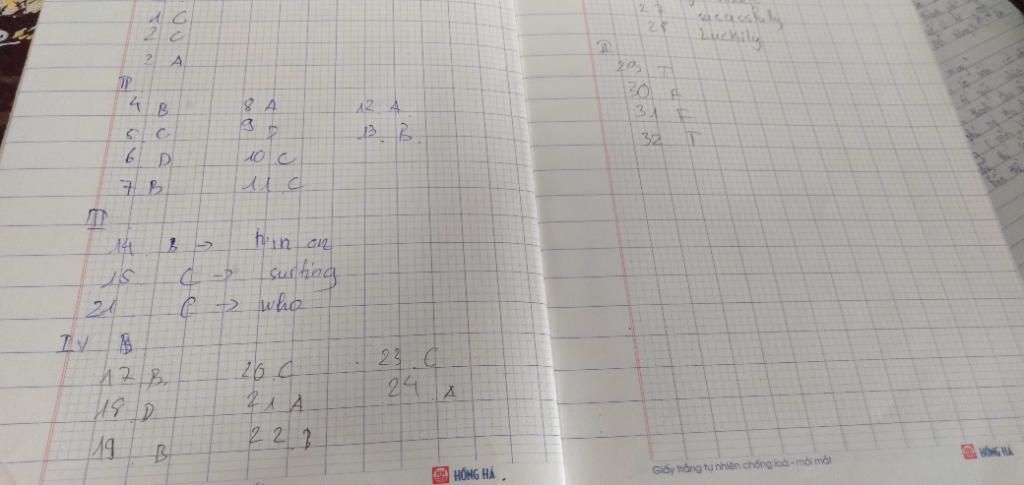 1 C
2 C
3 A
II
4 B 8 A 12 A
5 C 9 D 13. B.
6 D 10 C
7 B 11 C
III
14 B → turn on
15 C → surfing
21 C → who
IV B
17 B. 20 C 23 C
18. D 21 A 24 A
19 B 22 B
HỒNG HÀ
27 successfully
28 Luckily
II
29 T
30 F
31 F
32 T
Giấy trắng tự nhiên chống loá - mỏi mắt
HỒNG HÀ